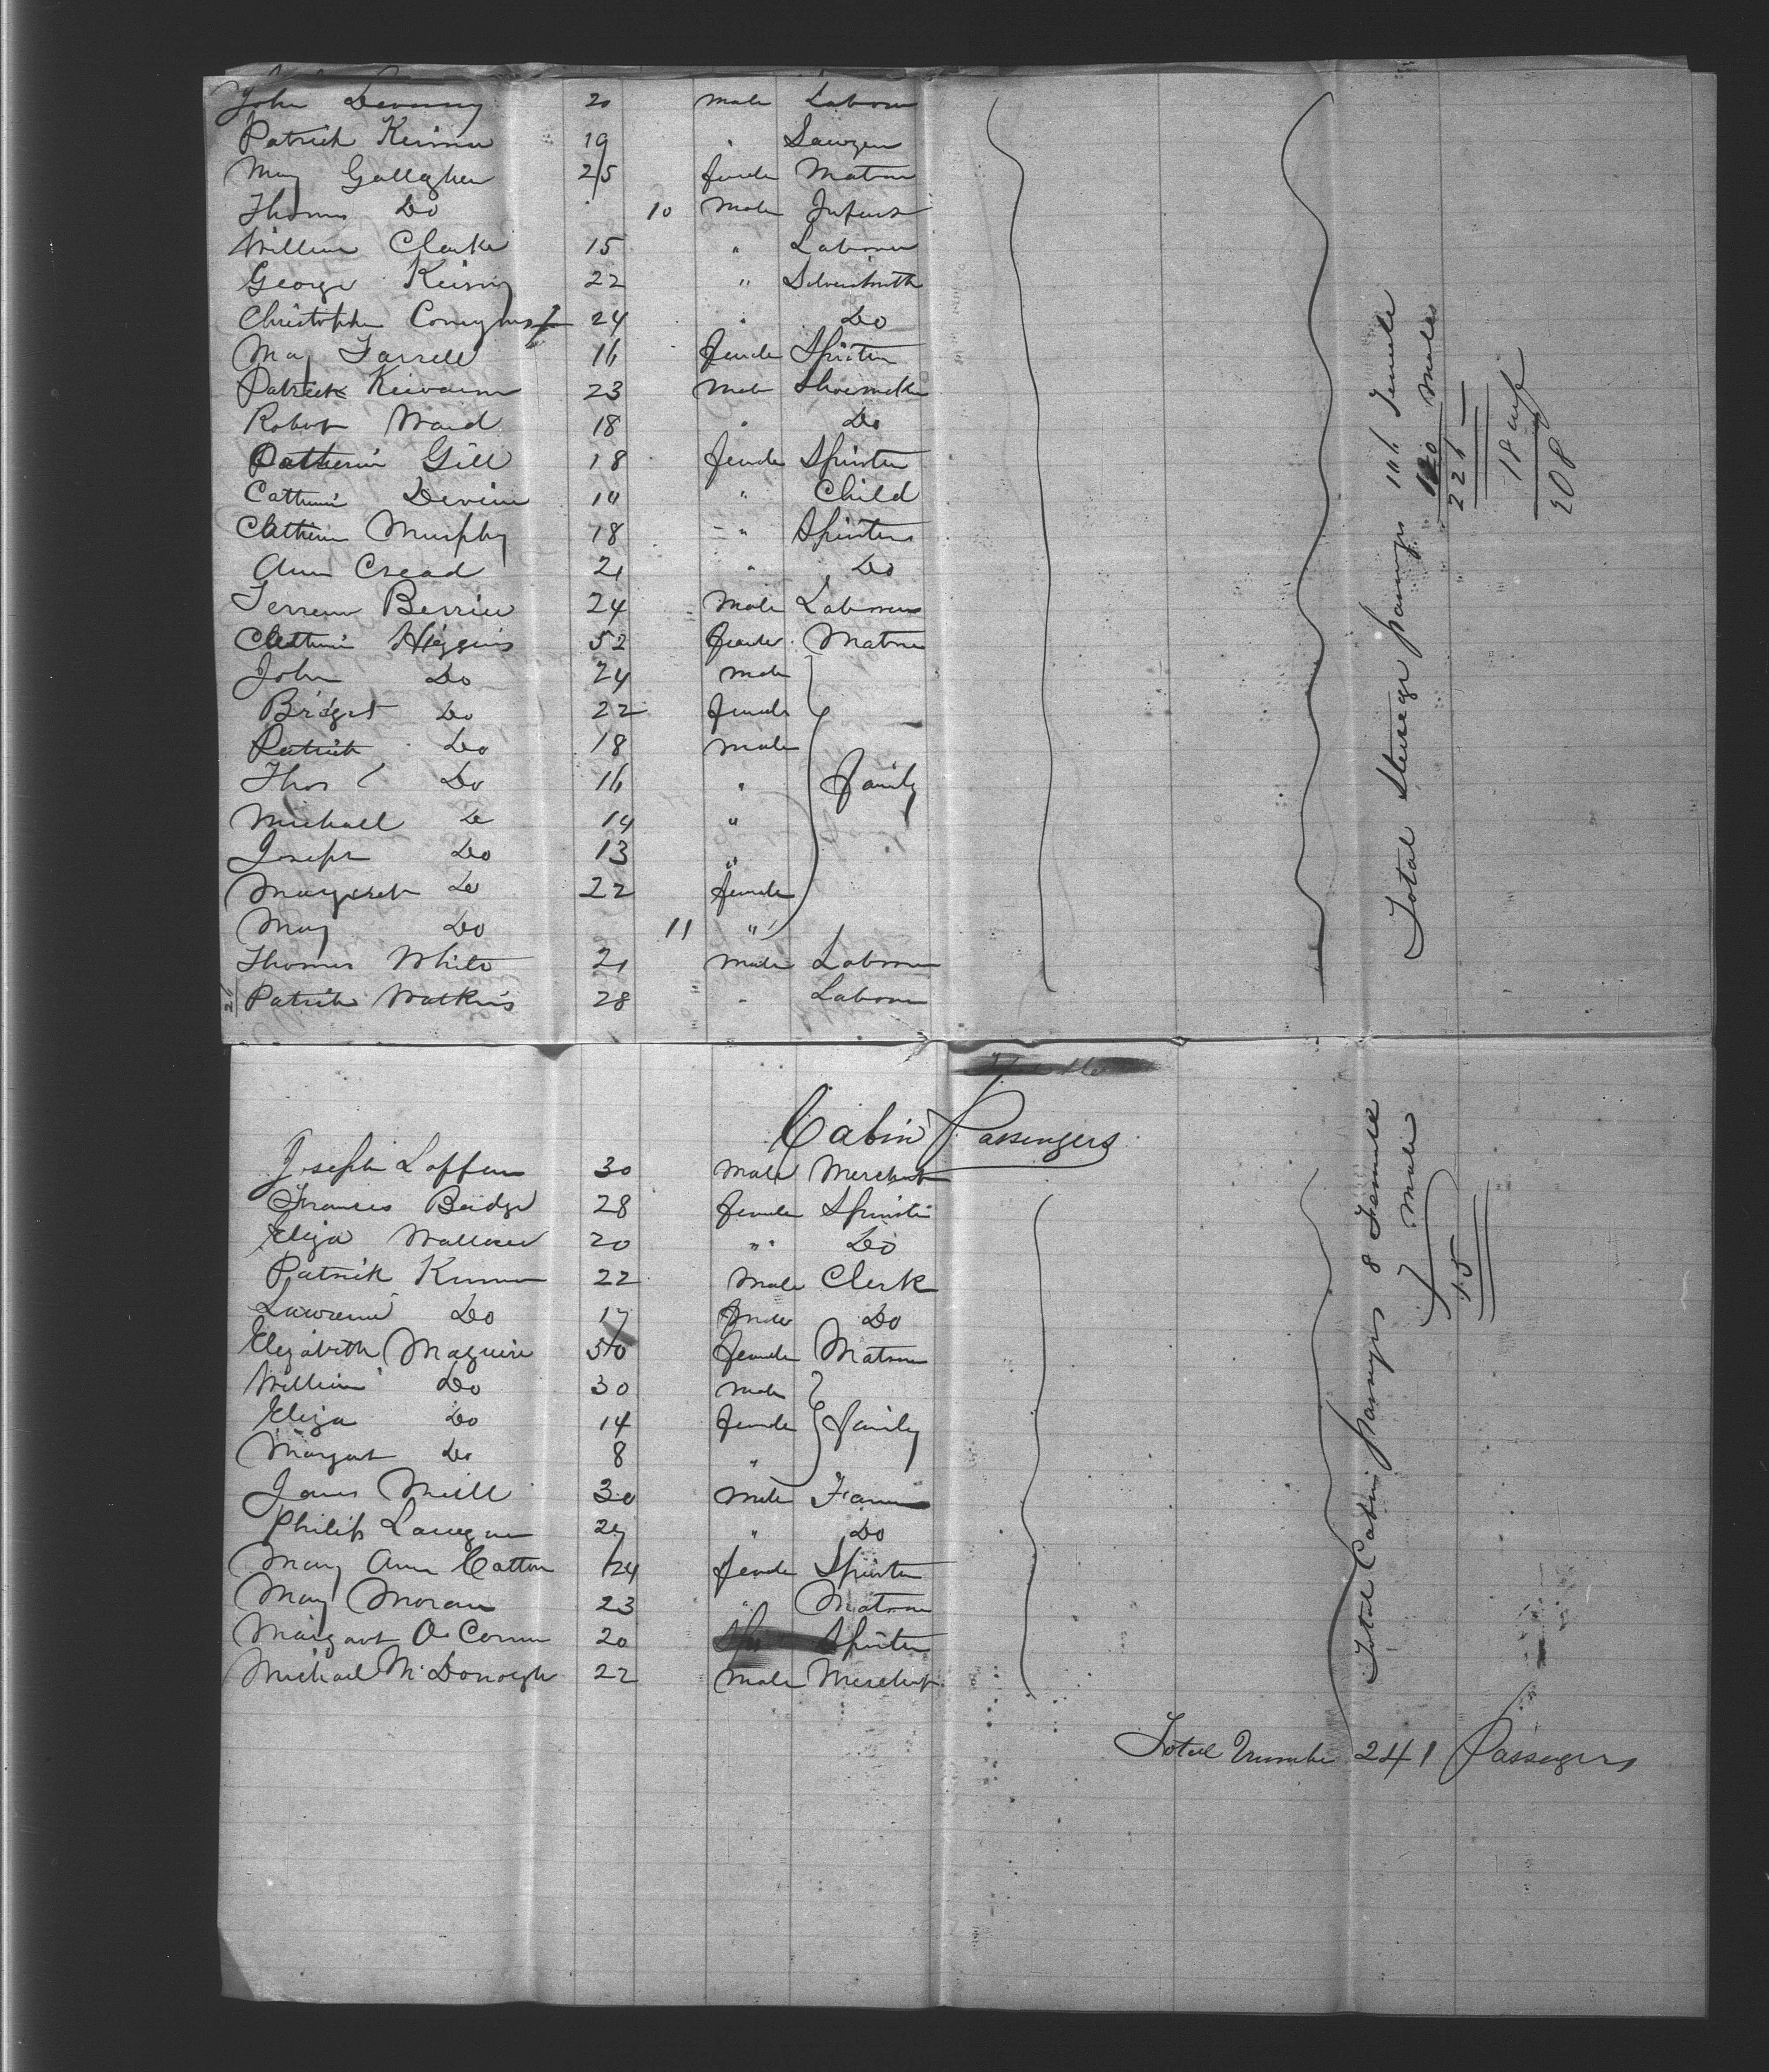 John 20 male Labour
Patrick 19 " Sawyer
Mary Gallagher 25 female Matron
Thomas Do 10 Male Infant
William Clarke 15 " Labourer
George 22 " Silversmith
Christopher 24 " Do
Mary Farrell 16 female Spinster
Patrick 23 Male Shoemaker
Robert Ward 18 " Do
Catherine Gill 18 female Spinster
Catherine Devine 10 " Child
Catherine Murphy 18 " Spinster
Ann Cread 21 " Do
24 Male Labourer
Catherine Higgins 52 female Matron
John Do 24 male
Bridget Do 22 female
Patrick Do 18 male
Thos Do 16 " family
Michael Do 14 "
Joseph Do 13 "
Margaret Do 22 female
Mary Do 11 "
Thomas White 21 male Labourer
26 Patrick Watkins 28 " Labourer
Total Steerage passengers 106 Female
120 Males
226
18 inf
208
Cabin Passengers
Joseph 30 male Merchant
Frances 28 female Spinster
Eliza 20 " Do
Patrick 22 Male Clerk
Lawrence Do 17 Do
Elizabeth Maguire 50 female Matron
William Do 30 male
Eliza Do 14 female family
Margaret Do 8 "
James 30 male Farmer
Philip 27 " Do
Mary Ann 24 female Spinster
Mary Moran 23 " Matron
Margaret 20 Spinster
Michael McDonough 22 male Merchant
Total Cabin passengers 8 Female
7 Male
15
Total Number 241 Passengers